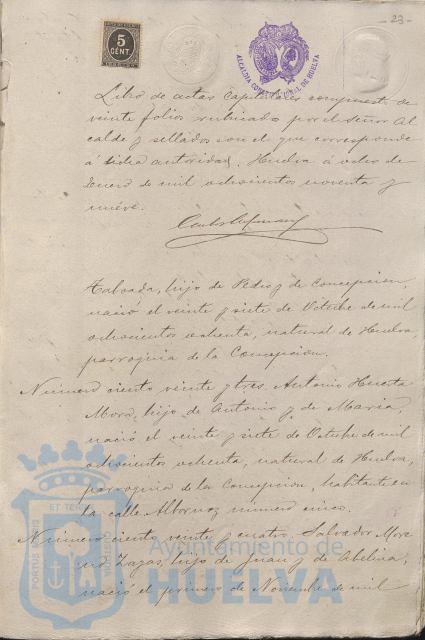 - 23 -
5
CENT.
ALCALDIA CONSTITUCIONAL DE HUELVA
Libro de actas Capitulares compuesto de
veinte folios rubricados por el Señor Al
calde y sellados con el que corresponde
á dicha autoridad. Huelva á ocho de
Enero de mil ochocientos noventa y
nueve.
Taboada, hijo de Pedro y de Concepcion,
nació el veinte y siete de Octubre de mil
ochocientos ochenta, natural de Huelva,
parroquia de la Concepcion.
Número ciento veinte y tres. Antonio Huesta
Mora, hijo de Antonio y de Maria,
nació el veinte y siete de Octubre de mil
ochocientos ochenta, natural de Huelva,
parroquia de la Concepcion, habitante en
la calle Albornoz número cinco.
Número ciento veinte y cuatro. Salvador More
no Zazas, hijo de Juan y de Abelina,
nació el primero de Noviembre de mil
Ayuntamiento de
HUELVA
PORTUS MARIS
ET TERRAE
CUSTODIA